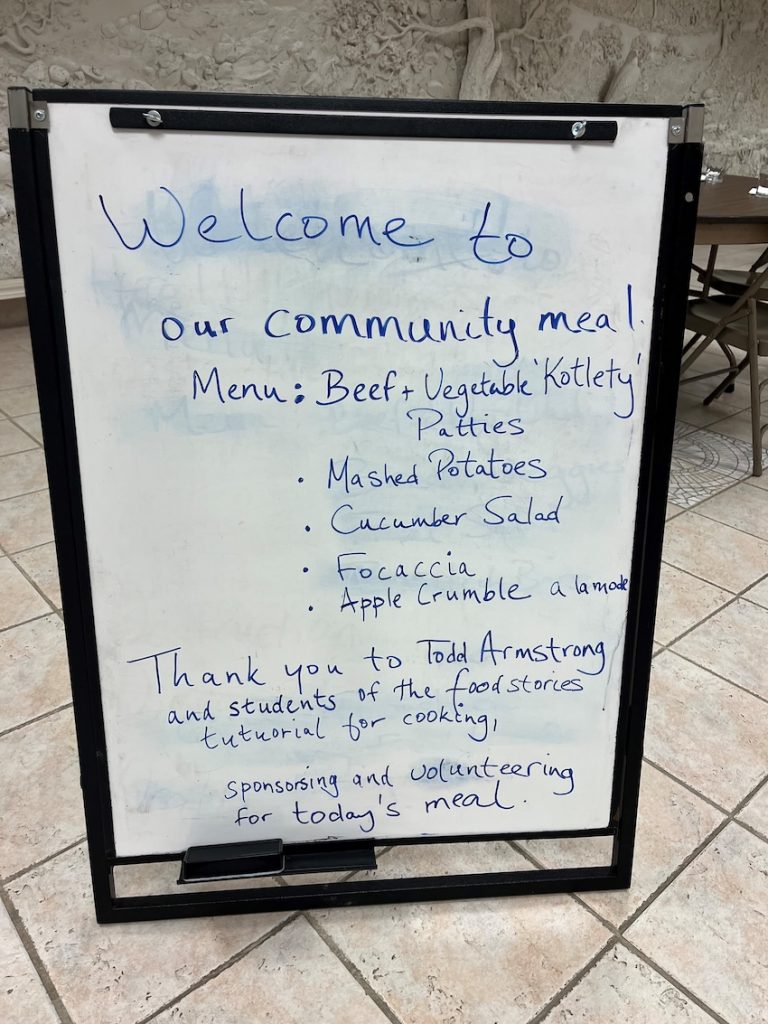 Welcome to
our community meal.
Menu: Beef + Vegetable 'Kotlety'
Patties
· Mashed Potatoes
· Cucumber Salad
· Focaccia
· Apple Crumble a la mode
Thank you to Todd Armstrong
and students of the food stories
tutuorial for cooking,
sponsorsing and volunteering
for today's meal.